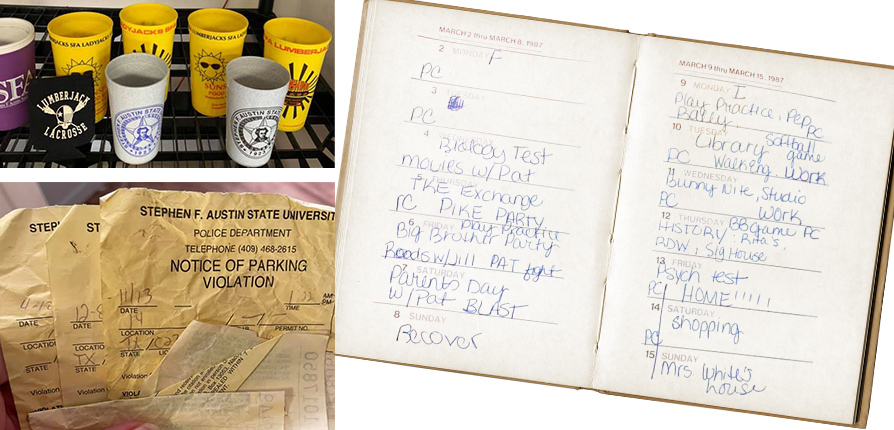 JACKS SFA LADYJACKS
LADYJACKS SFA
LUMBERJACKS SFA LADYJACKS
SFA LUMBERJACKS
SFA
SUNS
LUMBERJACK
LACROSSE
STEPHEN F. AUSTIN STATE
1923
STEPHEN F. AUSTIN STATE UNIVERSIT
POLICE DEPARTMENT
TELEPHONE (409) 468-2615
NOTICE OF PARKING
VIOLATION
11/13
DATE
TIME
AM
PM
LOCATION
PERMIT NO.
STEP
DATE
LOCATION
TX
STATE
Violation
VIOLATI
ST
DATE
LOCATION
STATE
Violation
1017850
MARCH 2 thru MARCH 8, 1987
2 MONDAY F
PC
3
PC
4
Biology Test
movies w/Pat
TKE Exchange
PC PIKE PARTY
6 FRIDAY Play Practice
Big Brother Party
Roods w/Jill PAT fight
7 SATURDAY
Parents Day
w/Pat BLAST
8 SUNDAY
Recover
MARCH 9 thru MARCH 15, 1987
9 MONDAY I
Play Practice, Pep PC
Ralley
10 TUESDAY softball
Library game
PC Walking WORK
11 WEDNESDAY
Bunny Nite, Studio
PC WORK
12 THURSDAY BB game PC
HISTORY : Rita's,
RDW, Sig House
13 FRIDAY
Psych test
PC HOME!!!!!
14 SATURDAY
shopping
PC
15 SUNDAY
Mrs White's
house